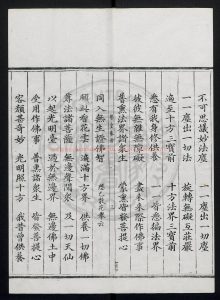 不可思議妙法塵　一一塵出一切塵
一一塵出一切法　旋轉無礙互莊嚴
遍至十方三寶前　十方法界三寶前
悉有我身修供養　一一皆悉徧法界
彼彼無雜無障礙　盡未來際作佛事
普熏法界諸眾生　蒙熏皆發菩提心
同入無生證佛智　想已散花云
願此香花雲　遍滿十方界　供養一切佛
尊法諸菩薩　無邊聲聞眾　及一切天仙
以起光明臺　過於無邊界　無邊佛土中
受用作佛事　普熏諸眾生　皆發菩提心
容顏甚奇妙　光明照十方　我昔曾供養